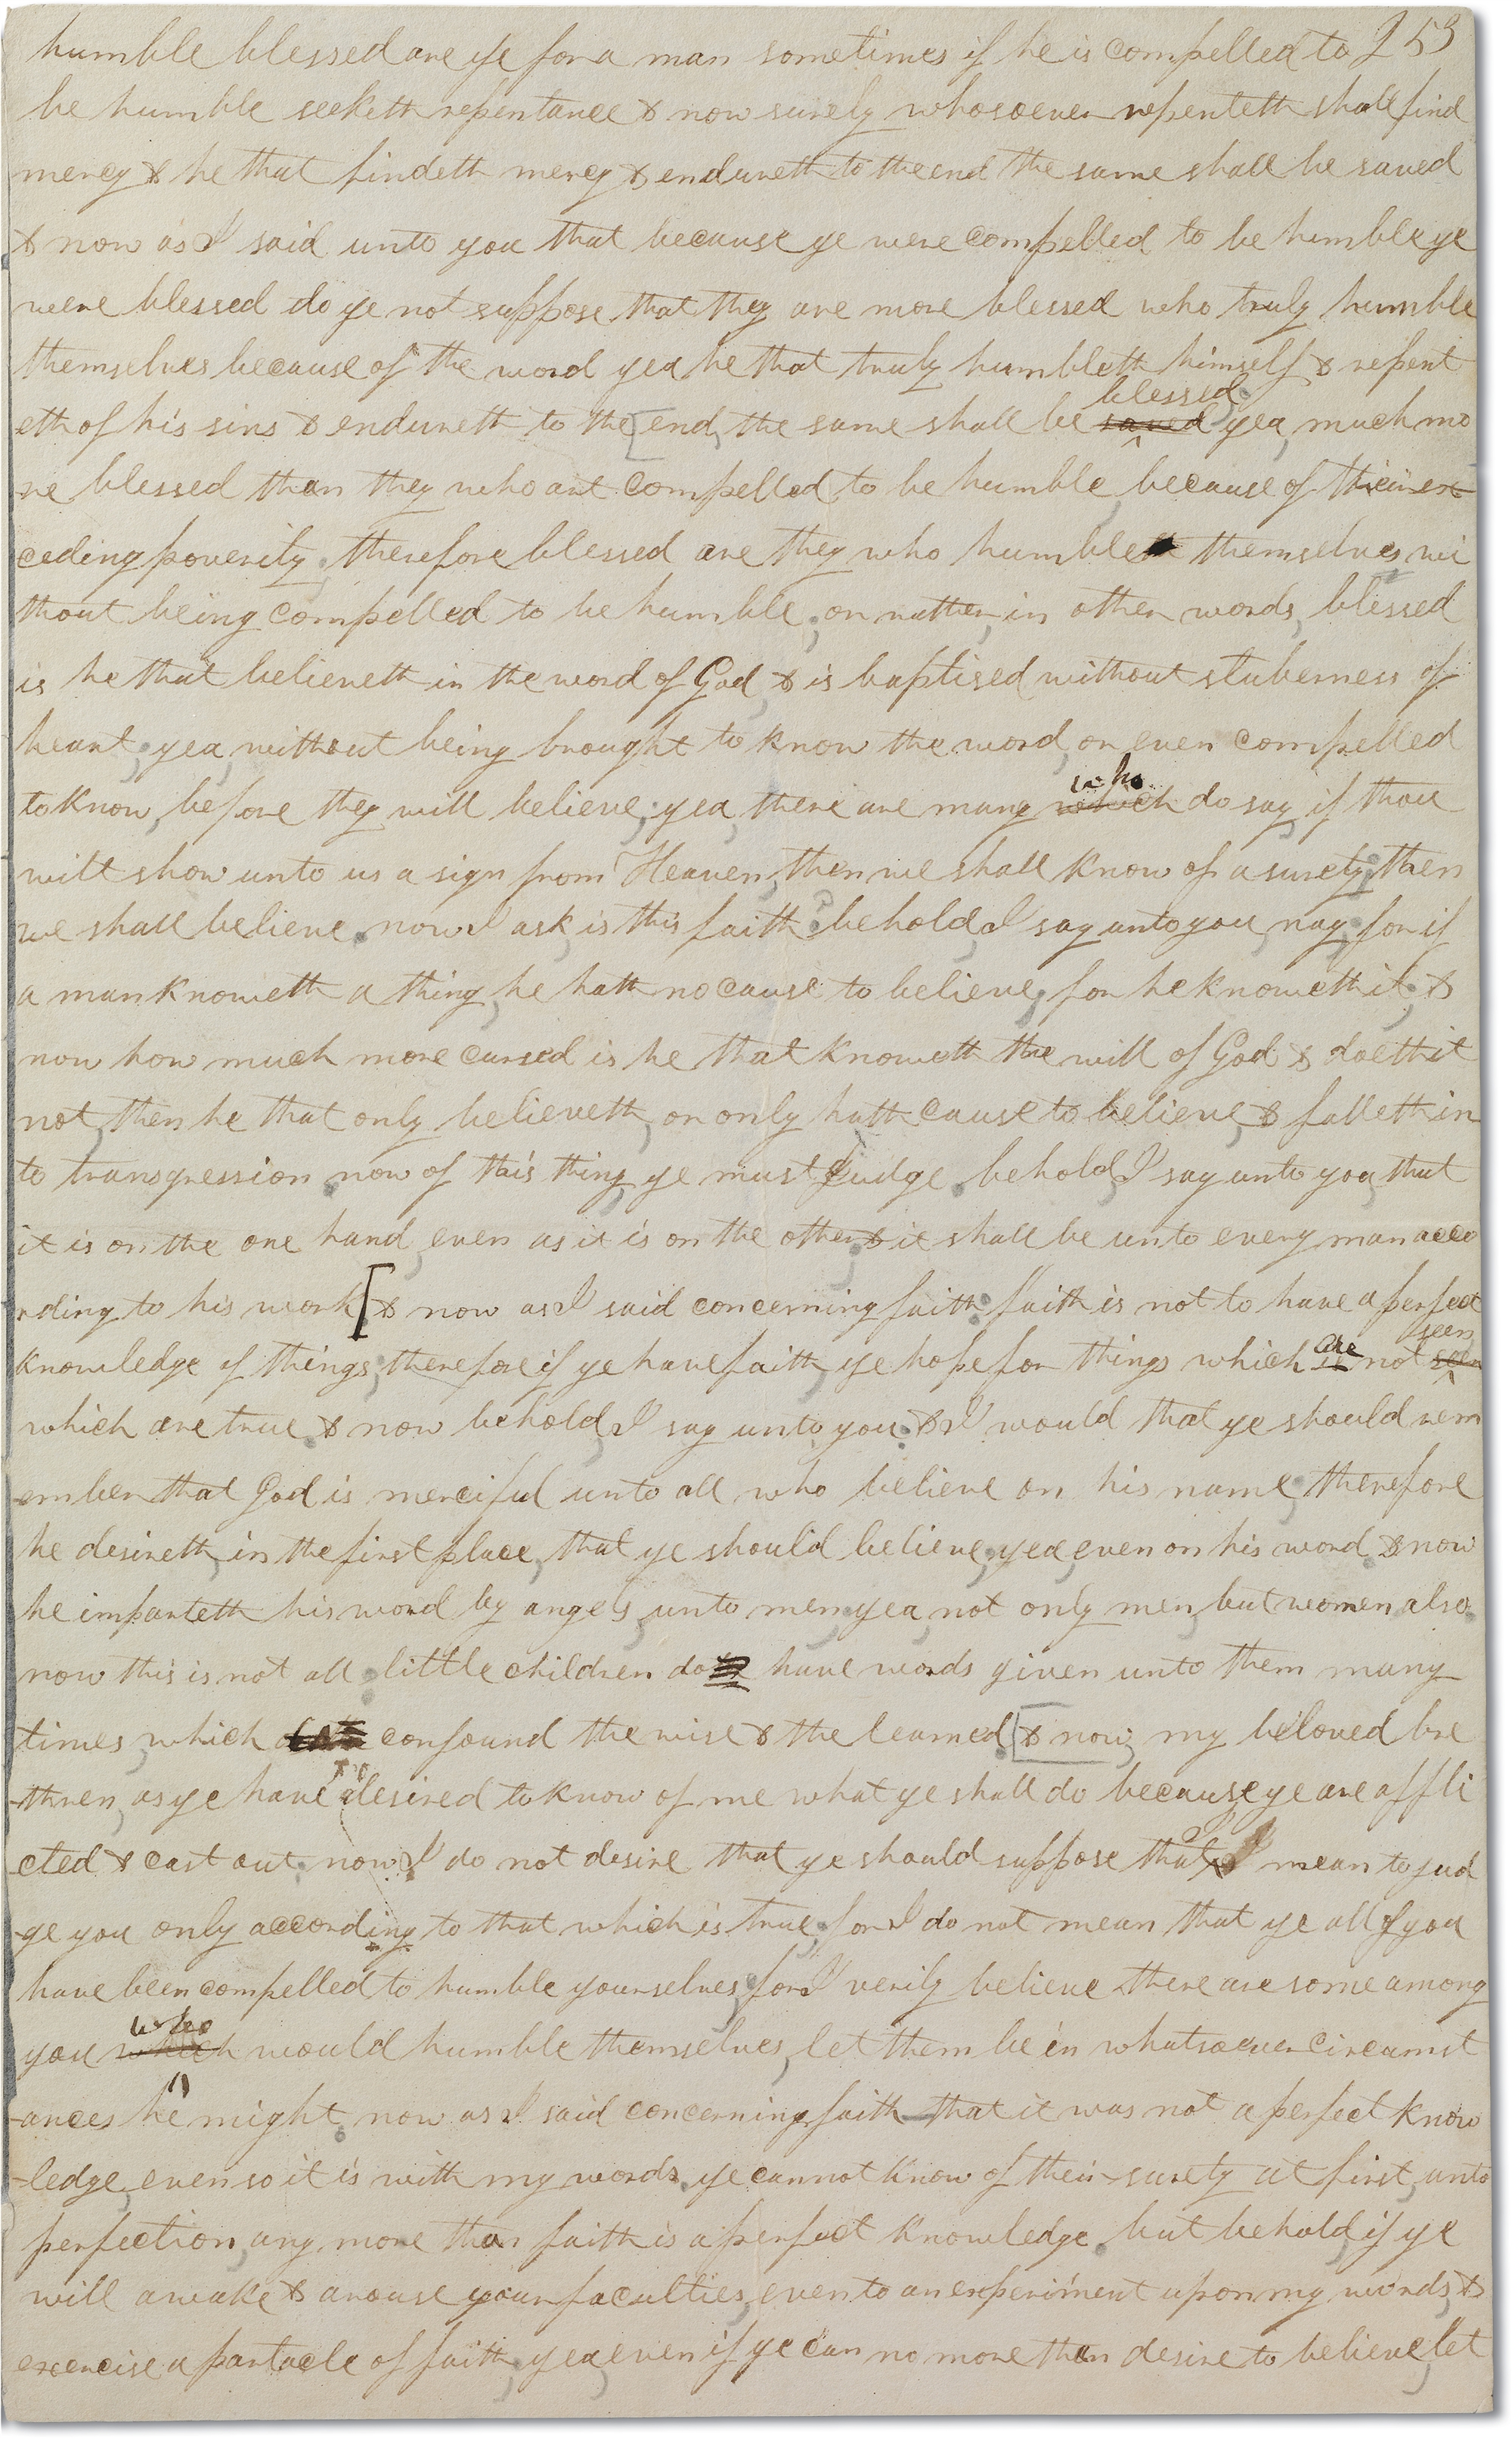 humble blessed are ye for a man sometimes if he is compelled to 253
be humble seeketh repentance & now surely whosoever repenteth shall find
mercy & he that findeth mercy & endureth to the end the same shall be saved
& now as I said unto you that because ye were compelled to be humble ye
were blessed do ye not suppose that they are more blessed who truly humble
themselves because of the word yea he that truly humbleth himself & repent
blessed
eth of his sins & endureth to the [end, the same shall be saved yea, much mo
re blessed than they who are compelled to be humble, because of their ex
ceding poverity, therefore blessed are they who humble themselves wi
thout being compelled to be humble; or rather, in other words, blessed
is he that believeth in the word of God, & is baptised without stuberness of
heart, yea, without being brought to know the word, or even compelled
who
to know, before they will believe; yea, there are many which do say, if thou
wilt show unto us a sign from Heaven, then we shall know of a surety; then
we shall believe. now I ask is this faith? behold, I say unto you, nay; for if
a man knoweth a thing, he hath no cause to believe, for he knoweth it; &
now how much more cursed is he that knoweth the will of God & doeth it
not, then he that only believeth, or only hath cause to believe, & falleth in
to transgression. now of this thing, ye must Judge. behold, I say unto you, that
it is on the one hand, even as it is on the other; & it shall be unto every man acco
rding to his work [& now as I said concerning faith: faith is not to have a perfect
are seen
knowledge of things; therefore if ye have faith, ye hope for things which is not seen
which are true. & now behold, I say unto you; & I would that ye should rem
ember that God is merciful unto all who believe on his name; therefore
he desireth, in the first place, that ye should believe, yea, even on his word. & now
he imparteth his word by angels, unto men; yea, not only men, but women also.
now this is not all: little children do have words given unto them many
times, which confound the wise & the learned. [& now, my beloved bre
thren, as ye have desired to know of me what ye shall do because ye are affli
I
cted & cast out: now I do not desire that ye should suppose that I mean to jud
ge you only according to that which is true; for I do not mean that ye all of you
have been compelled to humble yourselves; for I verily believe there are some among
who
you which would humble themselves, let them be in whatsoever circumst
ances he might. now as I said concerning faith—that it was not a perfect know
-ledge, even so it is with my words. ye cannot know of their surety at first, unto
perfection, any more than faith is a perfect knowledge. but behold, if ye
will awake & arouse your faculties, even to an experiment upon my words, &
exercise a partacle of faith; yea, even if ye can no more than desire to believe, let